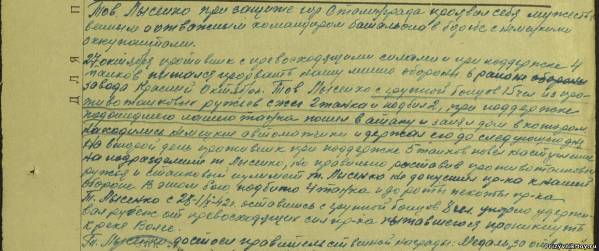 Тов Лысенко при защите гор Сталинграда проявил себя мужест
венным отважным командиром батальона в борьбе с немецкими
оккупантами.
27 октября противник с превосходящими силами и при поддержке 4
танков пытался прорвать нашу линию обороны в районе обороны
завода Красный Октябрь. Тов Лысенко с группой бойцов 15 чел из про-
тивотанковых ружьев сжег 2 танка и подбил 2, при поддержке
подошедшего нашего танка пошел в атаку и занял дом в котором
находились немецкие автоматчики и держал его до следующего дня
На второй день противник при поддержке 5 танков повел наступление
на подразделение т. Лысенко, но правильно расставив противотанковые
ружья и станковый пулемет т. Лысенко не допустил пр-ка к нашей
обороне. В этом бою подбито 4 танка и до роты пехоты пр-ка
Т. Лысенко с 28 42г. оставшись с группой бойцов 8 чел. упорно удержи-
вал рубеж от превосходящих сил пр-ка пытавшегося проникнуть
к реке Волге.
Т. Лысенко достоин правительственной награды: Медаль за отвагу
П
Д Л Я